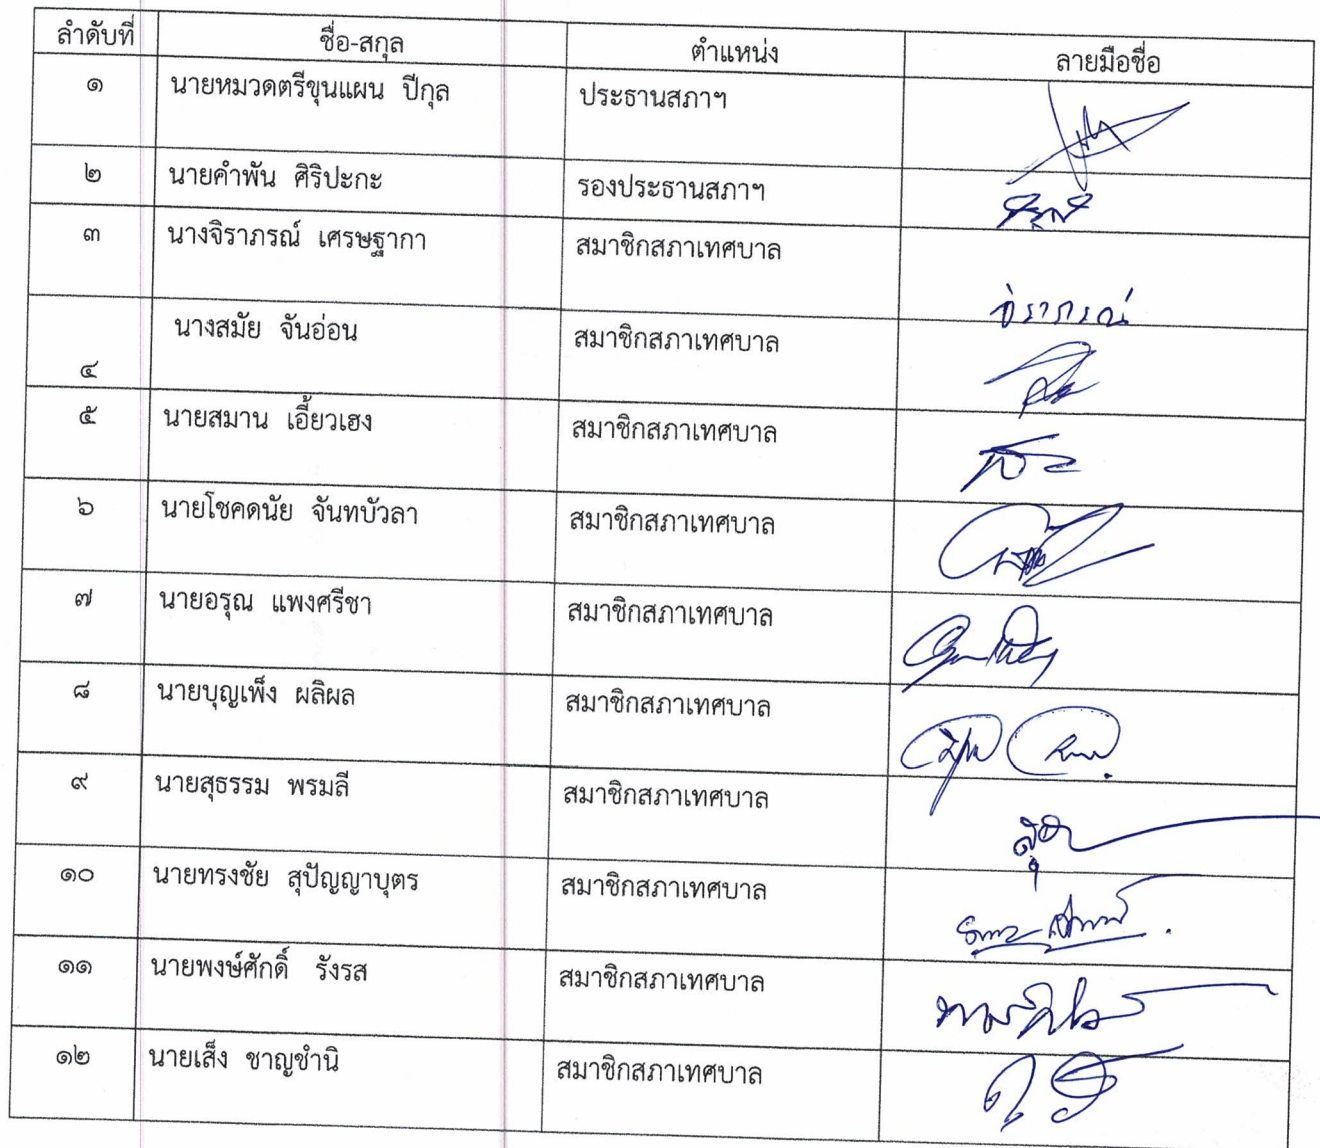 ลำดับที่ ชื่อ-สกุล ตำแหน่ง ลายมือชื่อ
๑ นายหมวดตรีขุนแผน ปีกุล ประธานสภาฯ
๒ นายคำพัน ศิริปะกะ รองประธานสภาฯ
๓ นางจิราภรณ์ เศรษฐากา สมาชิกสภาเทศบาล จิราภรณ์
๔ นางสมัย จันอ่อน สมาชิกสภาเทศบาล
๕ นายสมาน เอี้ยวเฮง สมาชิกสภาเทศบาล
๖ นายโชคดนัย จันทบัวลา สมาชิกสภาเทศบาล
๗ นายอรุณ แพงศรีชา สมาชิกสภาเทศบาล
๘ นายบุญเพ็ง ผลิผล สมาชิกสภาเทศบาล
๙ นายสุธรรม พรมลี สมาชิกสภาเทศบาล
๑๐ นายทรงชัย สุปัญญาบุตร สมาชิกสภาเทศบาล
๑๑ นายพงษ์ศักดิ์ รังรส สมาชิกสภาเทศบาล
๑๒ นายเส็ง ชาญชำนิ สมาชิกสภาเทศบาล